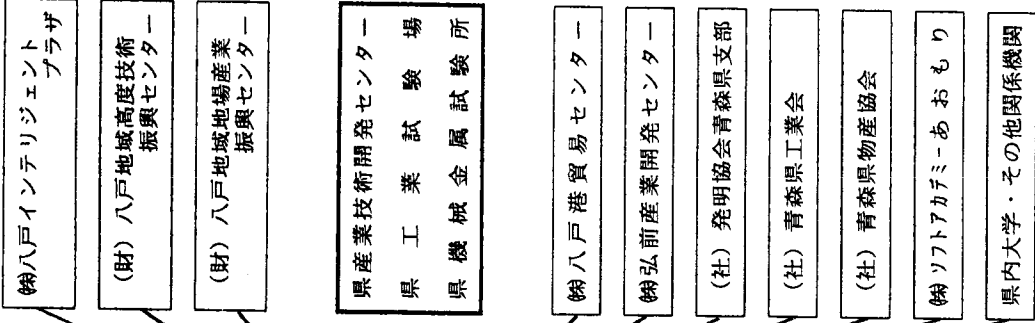 ㈱八戸インテリジェント
プラザ
(財) 八戸地域高度技術
振興センター
(財) 八戸地域地場産業
振興センター
県産業技術開発センター
県工業試験場
県機械金属試験所
㈱八戸港貿易センター
㈱弘前産業開発センター
(社) 発明協会青森県支部
(社) 青森県工業会
(社) 青森県物産協会
㈱ソフトアカデミーあおもり
県内大学・その他関係機関